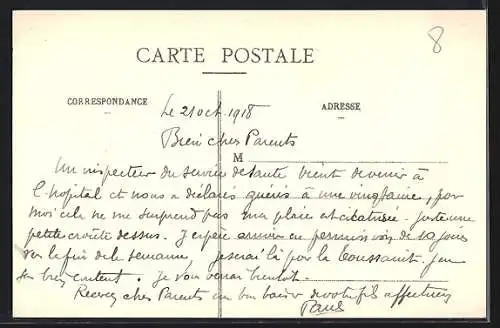 8
CARTE POSTALE
CORRESPONDANCE
ADRESSE
Le 21 oct. 1918
Bien chers Parents
M
Un inspecteur du service de santé vient de venir à
l'hopital et nous a déclarés guéris à une vingtaine, pour
moi cela ne me surprend pas ma plaie est cicatrisée. juste une
petite croûte dessus. J'espère arriver en permission de 10 jours
vers la fin de la semaine, je serai là pour la Toussaint. j'en
suis bien content. je vous verrai bientôt.
Recevez chers Parents un bon baiser de votre fils affectueux
Paul